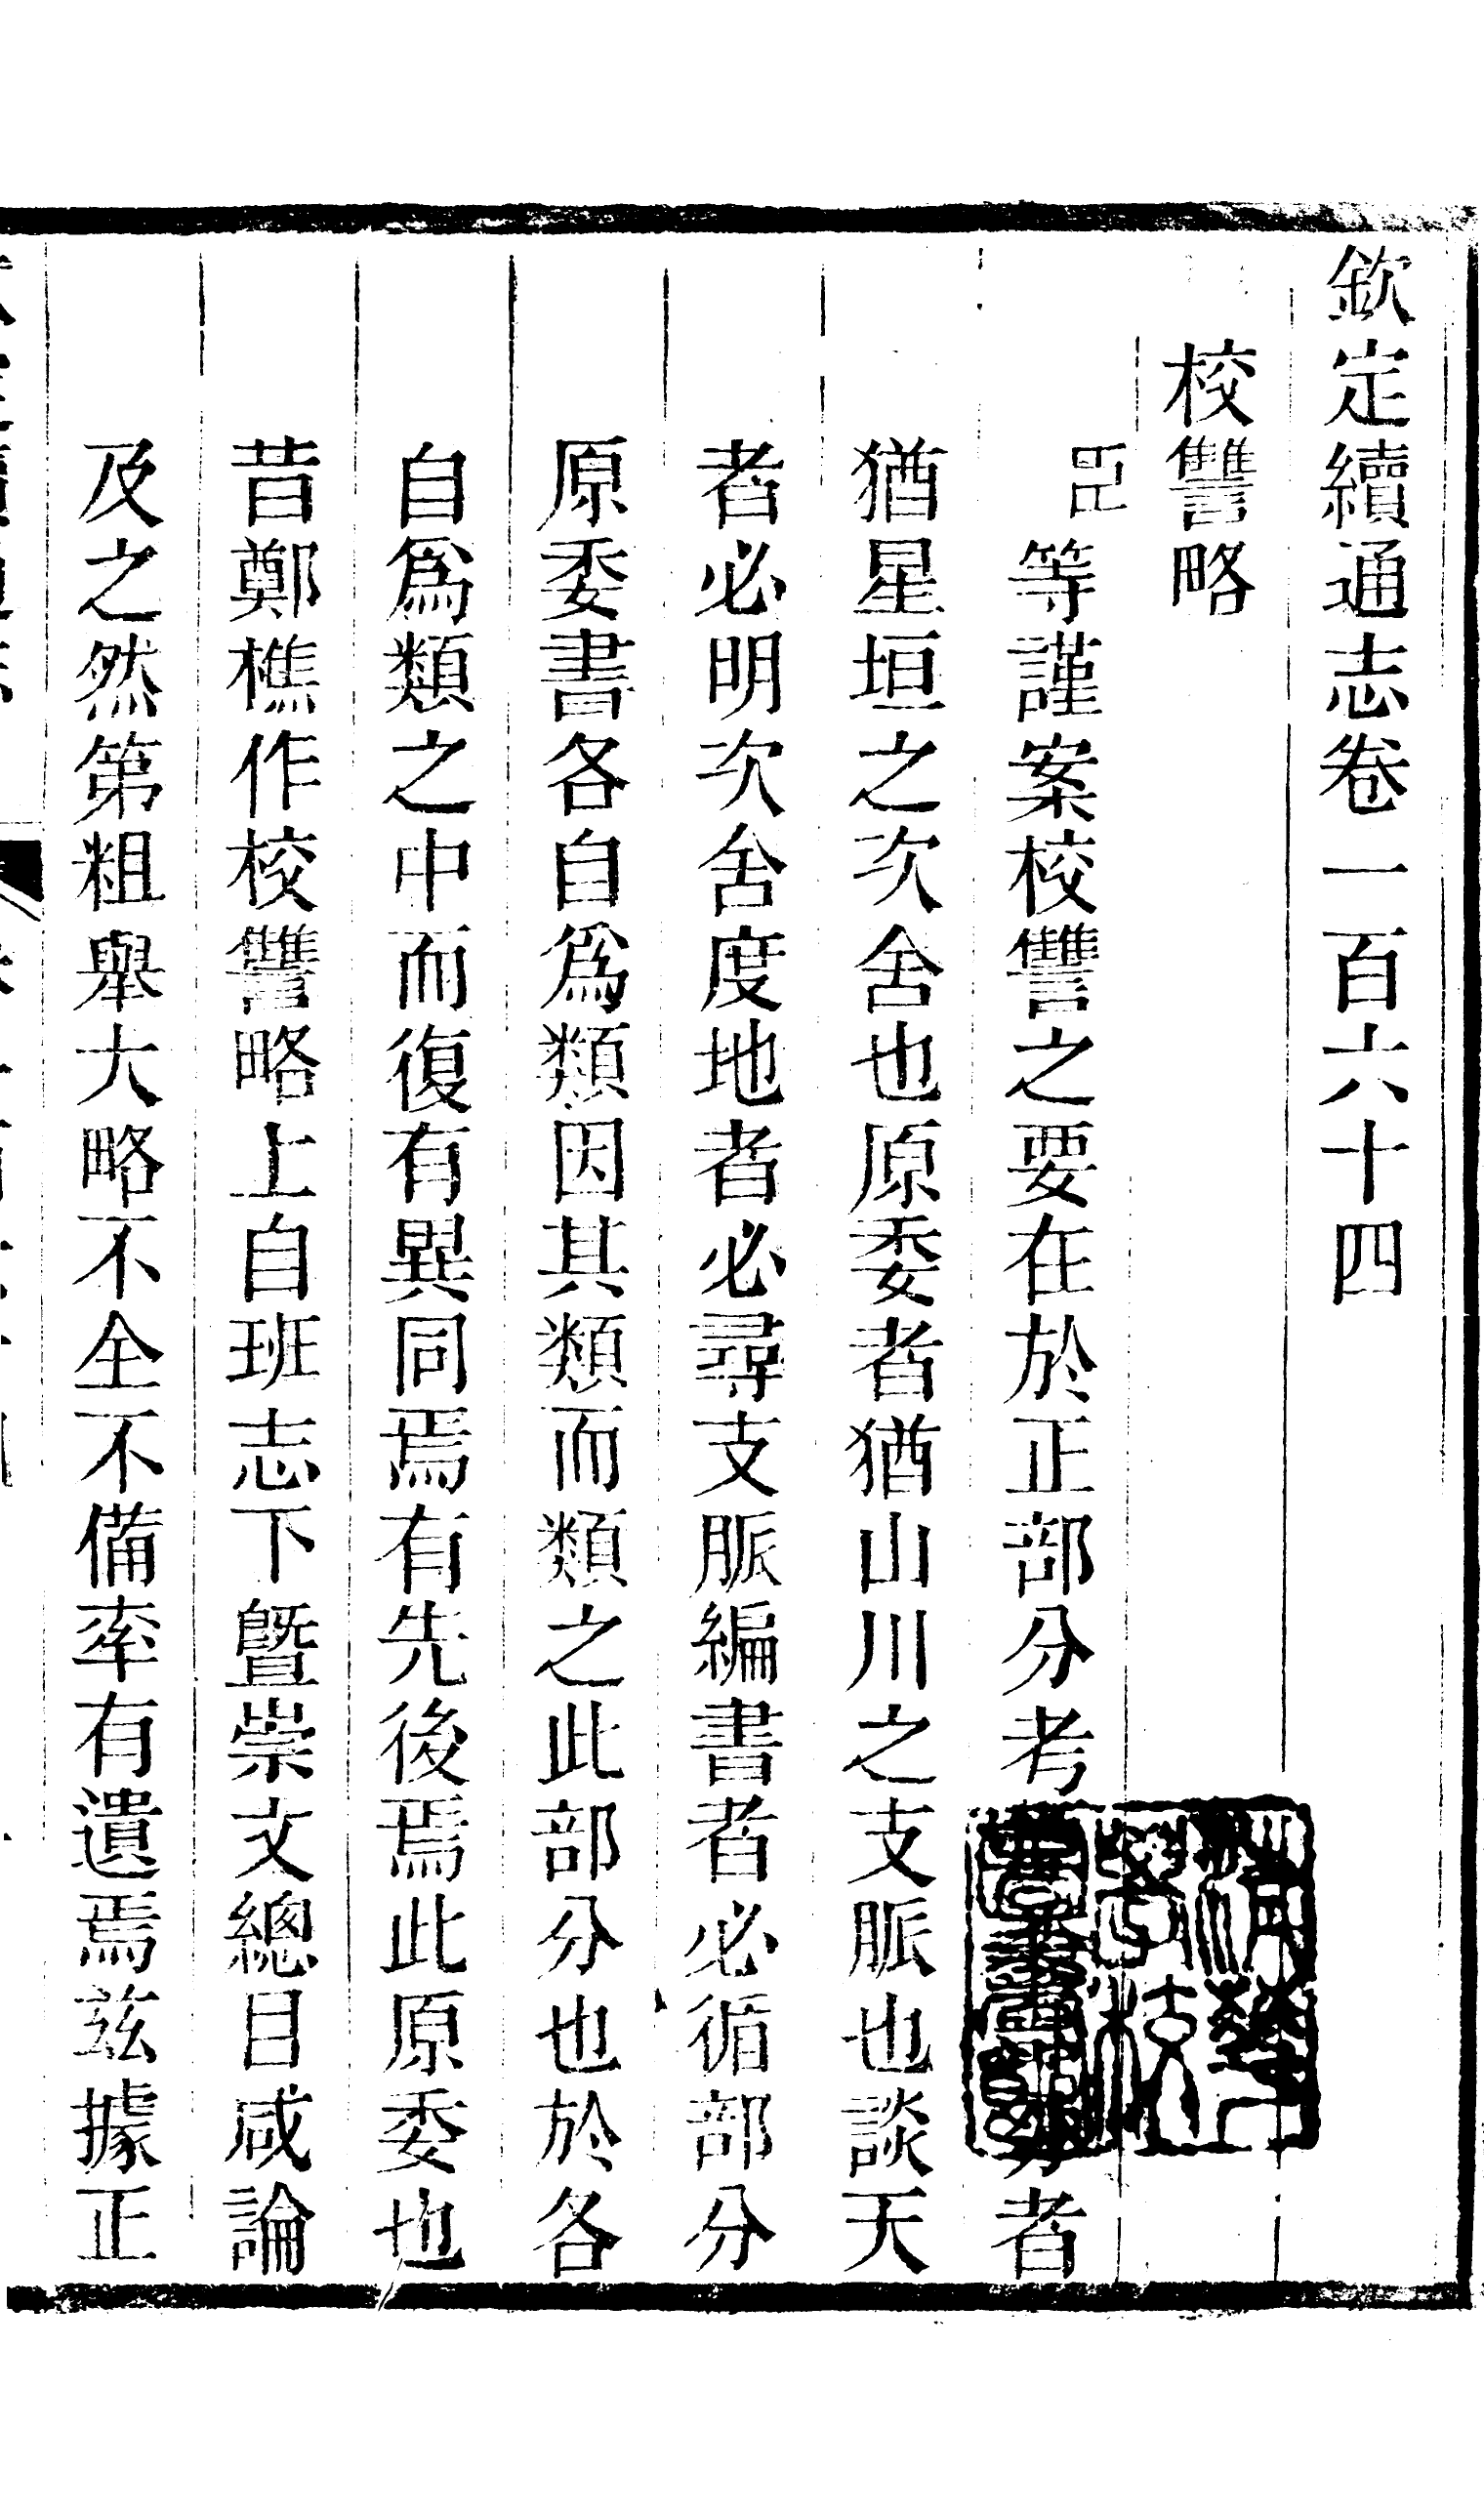 欽定續通志卷一百六十四
校讐略
臣等謹案校讐之要在於正部分考者
猶星垣之次舍也原委者猶山川之支脈也談天
者必明次舍度地者必尋支脈編書者必循部分
原委書各自爲類因其類而類之此部分也於各
自爲類之中而復有異同焉有先後焉此原委也
昔鄭樵作校讐略上自班志下暨崇文總目咸論
及之然第粗舉大略不全不備率有遺焉茲據正